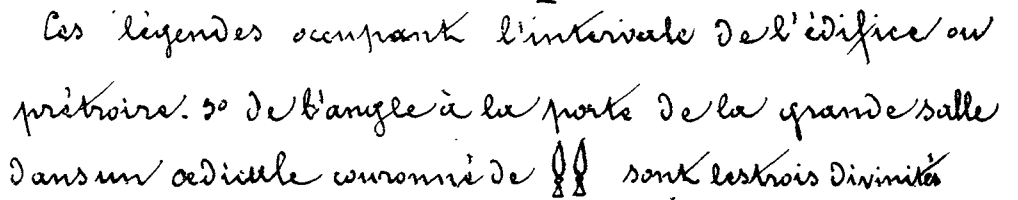 Ces légendes occupant l'intervale de l'édifice ou
prétroire. 3º de l'angle à la porte de la grande salle
dans un œdicule couronné de sont les trois divinités